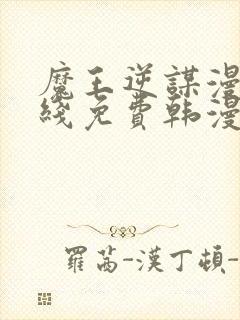 魔王逆謀漫
綫免費韩漫
羅茜-漢丁頓-